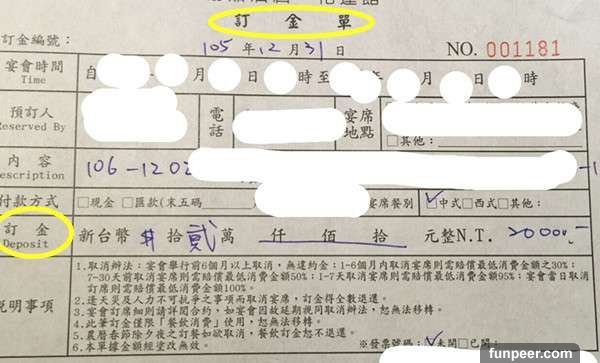 訂 金 單
訂金編號：
105年12月31日
NO. 001181
宴會時間 Time 自 月 日 時至 年 月 日 時
預訂人 Reserved By 電話 宴席地點 □其他：
內容 Description 106-1202
付款方式 □現金 □匯款(末五碼 宴席餐別 ☑中式□西式□其他：
訂金 Deposit 新台幣 拾貳萬 仟 佰 拾 元整N.T. 20000.-
說明事項
1.取消辦法：宴會舉行前6個月以上取消，無違約金；1-6個月內取消宴席則需賠償最低消費金額之30%；
7-30天前取消宴席則需賠償最低消費金額50%；1-7天取消宴席則需賠償最低消費金額95%；宴會當日取消
則需賠償最低消費金額100%。
2.逢天災及人力不可抗爭之事項而取消宴席，訂金得全數退還。
3.宴會訂席細則請詳閱合約，如宴會因故延期視同取消辦法，恕無法移轉。
4.此筆訂金僅限「餐飲消費」使用，恕無法移轉。
5.農曆春節除夕夜之訂餐如欲取消，餐飲訂金恕不退還。
6.本單據金額經塗改無效。
※發票號碼：☑未開□已開：
funpeer.com